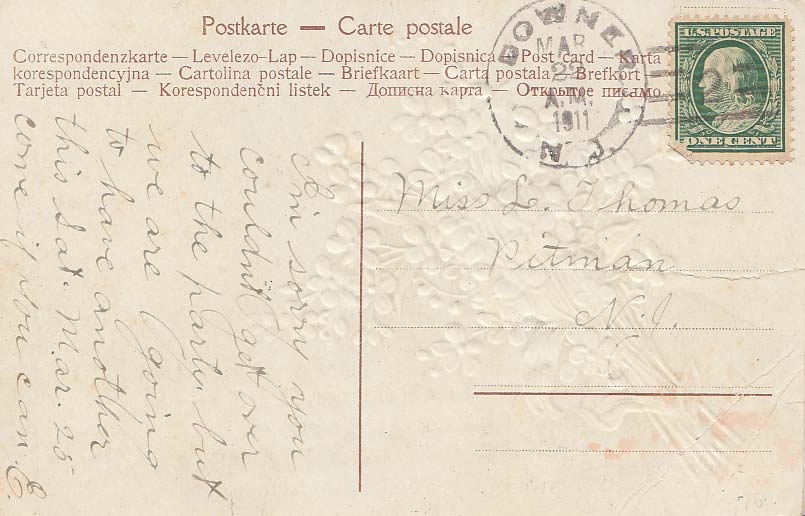 Postkarte — Carte postale
Correspondenzkarte — Levelezo-Lap — Dopisnice — Dopisnica — Post card — Karta
korespondencyjna — Cartolina postale — Briefkaart — Carta postala — Brefkort
Tarjeta postal — Korespondenčni listek — Дописна карта — Открытое письмо
DOWNER
MAR
22
A.M.
1911
N.J.
U.S. POSTAGE
ONE CENT
I'm sorry you
couldn't get over
to the party but
we are going
to have another
this Sat. Mar. 25
come if you can. E.
Miss L. Thomas
Pitman
N.J.